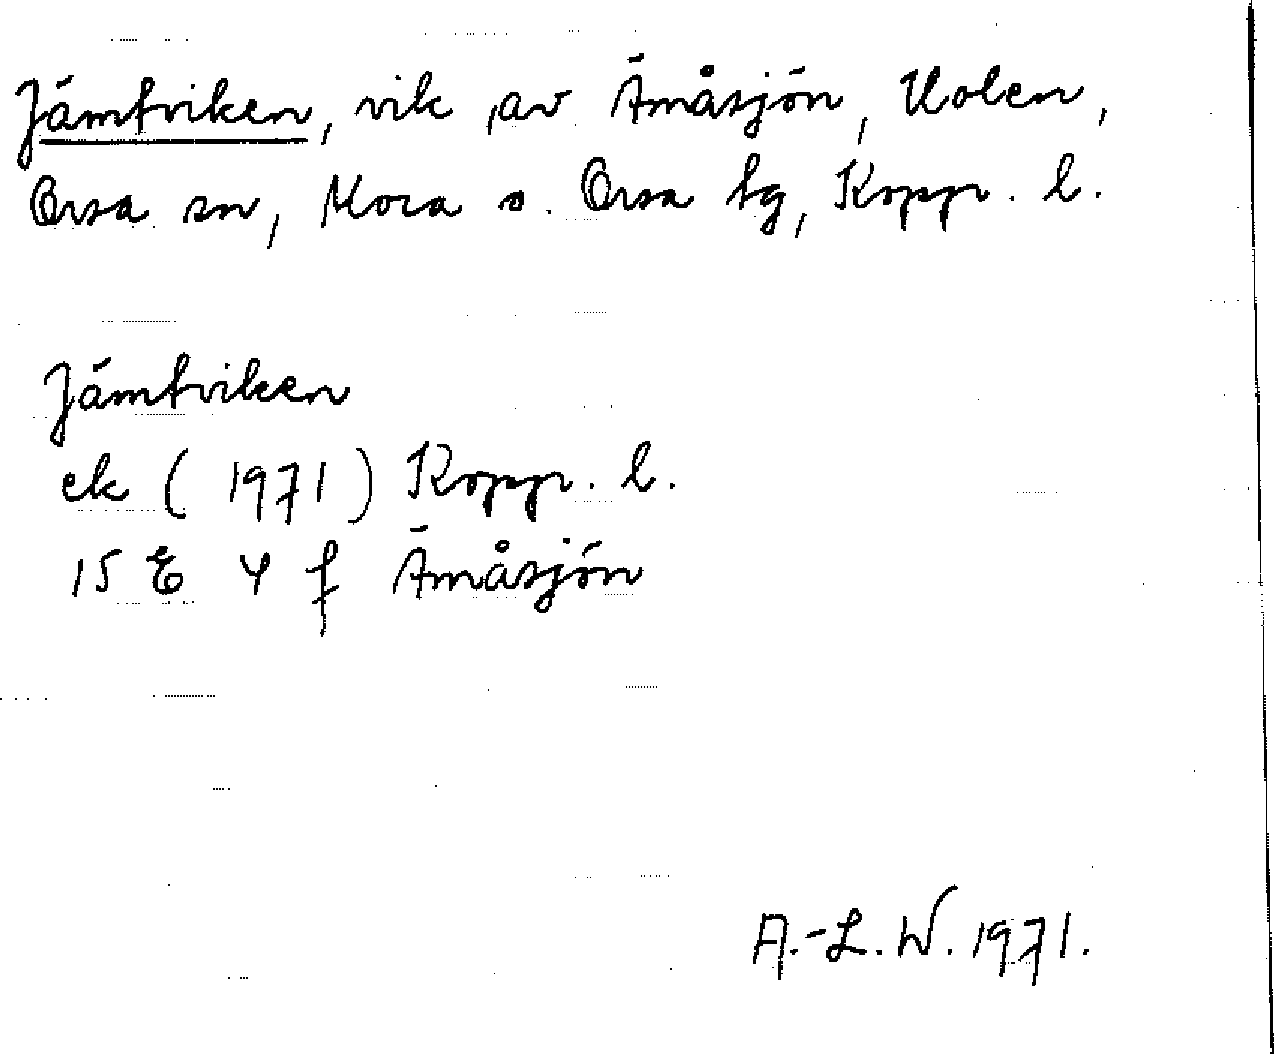 Jämtviken, vik av Ämåsjön, Uolen,
Orsa sn, Mora o. Orsa tg, Koppr. l.
Jämtviken
ek (1971) Koppr. l.
15 E 4 f Ämåsjön
A.-L. W. 1971.